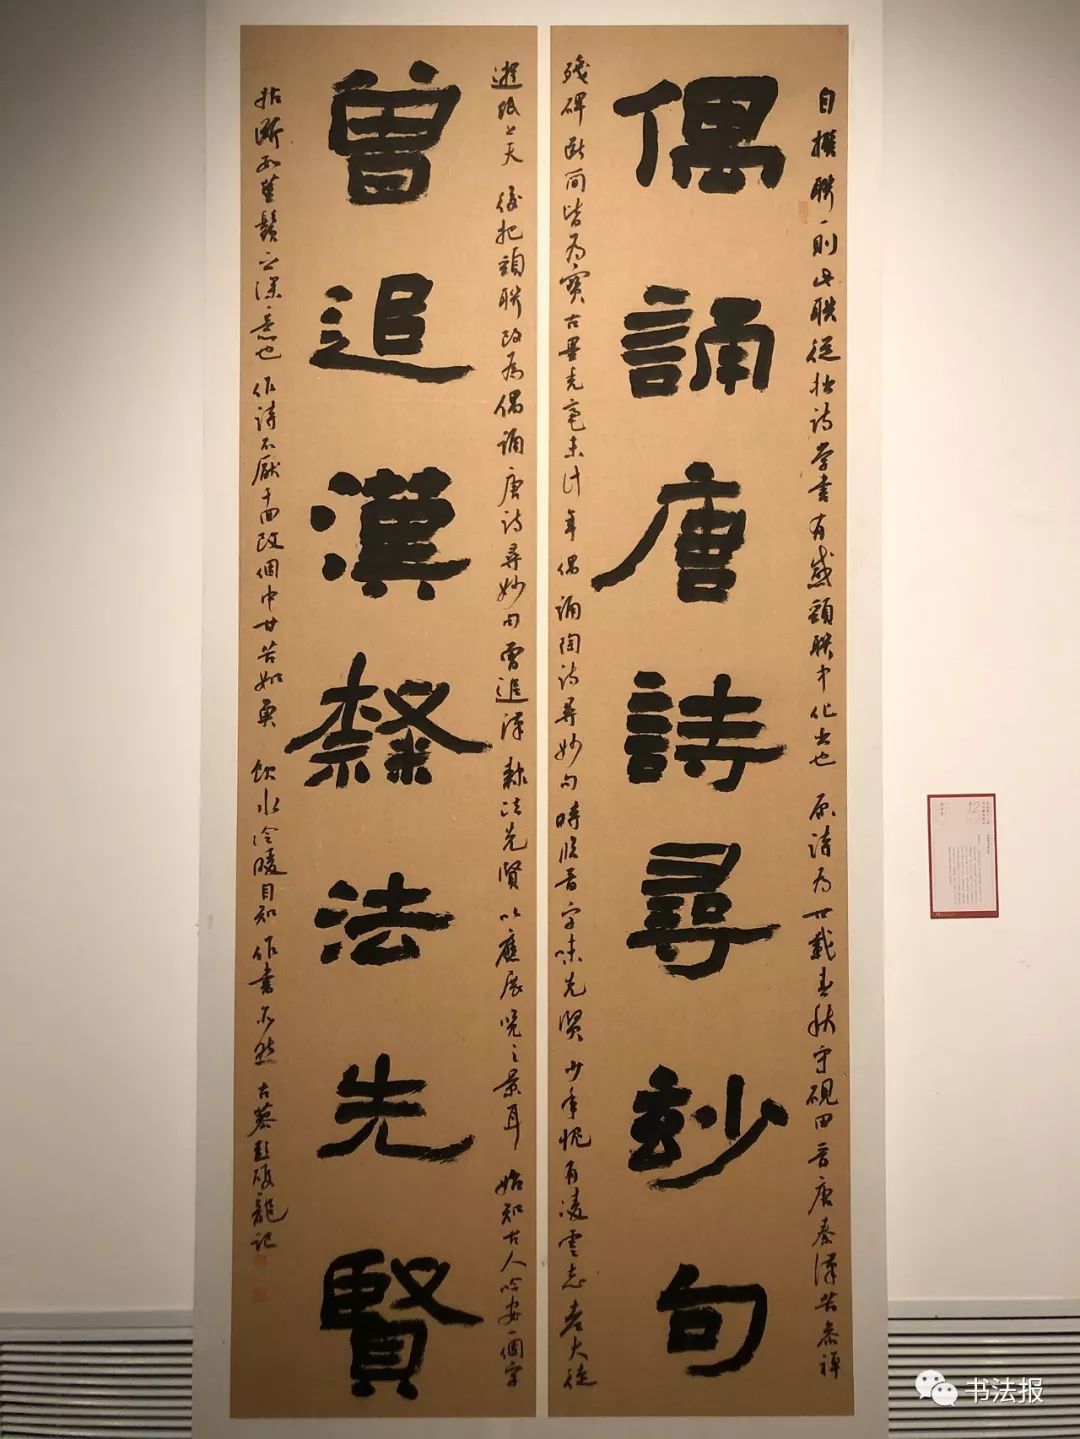 自撰聯一則此联從拙詩学書有感頷联中化出也 原詩為 廿載春秋守硯田晉唐秦漢苦参禅
偶誦唐詩尋妙句
殘碑断简皆為寶古墨禿毫未计年偶誦陶詩尋妙句時臨晉字味先贤少年愧有凌雲志老大徒
遊纸上天 後把頷联改為偶誦唐诗尋妙句曾追漢隸法先賢以應展覽之景耳 始知古人吟安一個字
曾追漢隸法先賢
拈断数莖鬚之深意也 作詩不厭千回改個中甘苦如魚 飲水冷暖自知作書亦然 古 彭 龍記
书法报